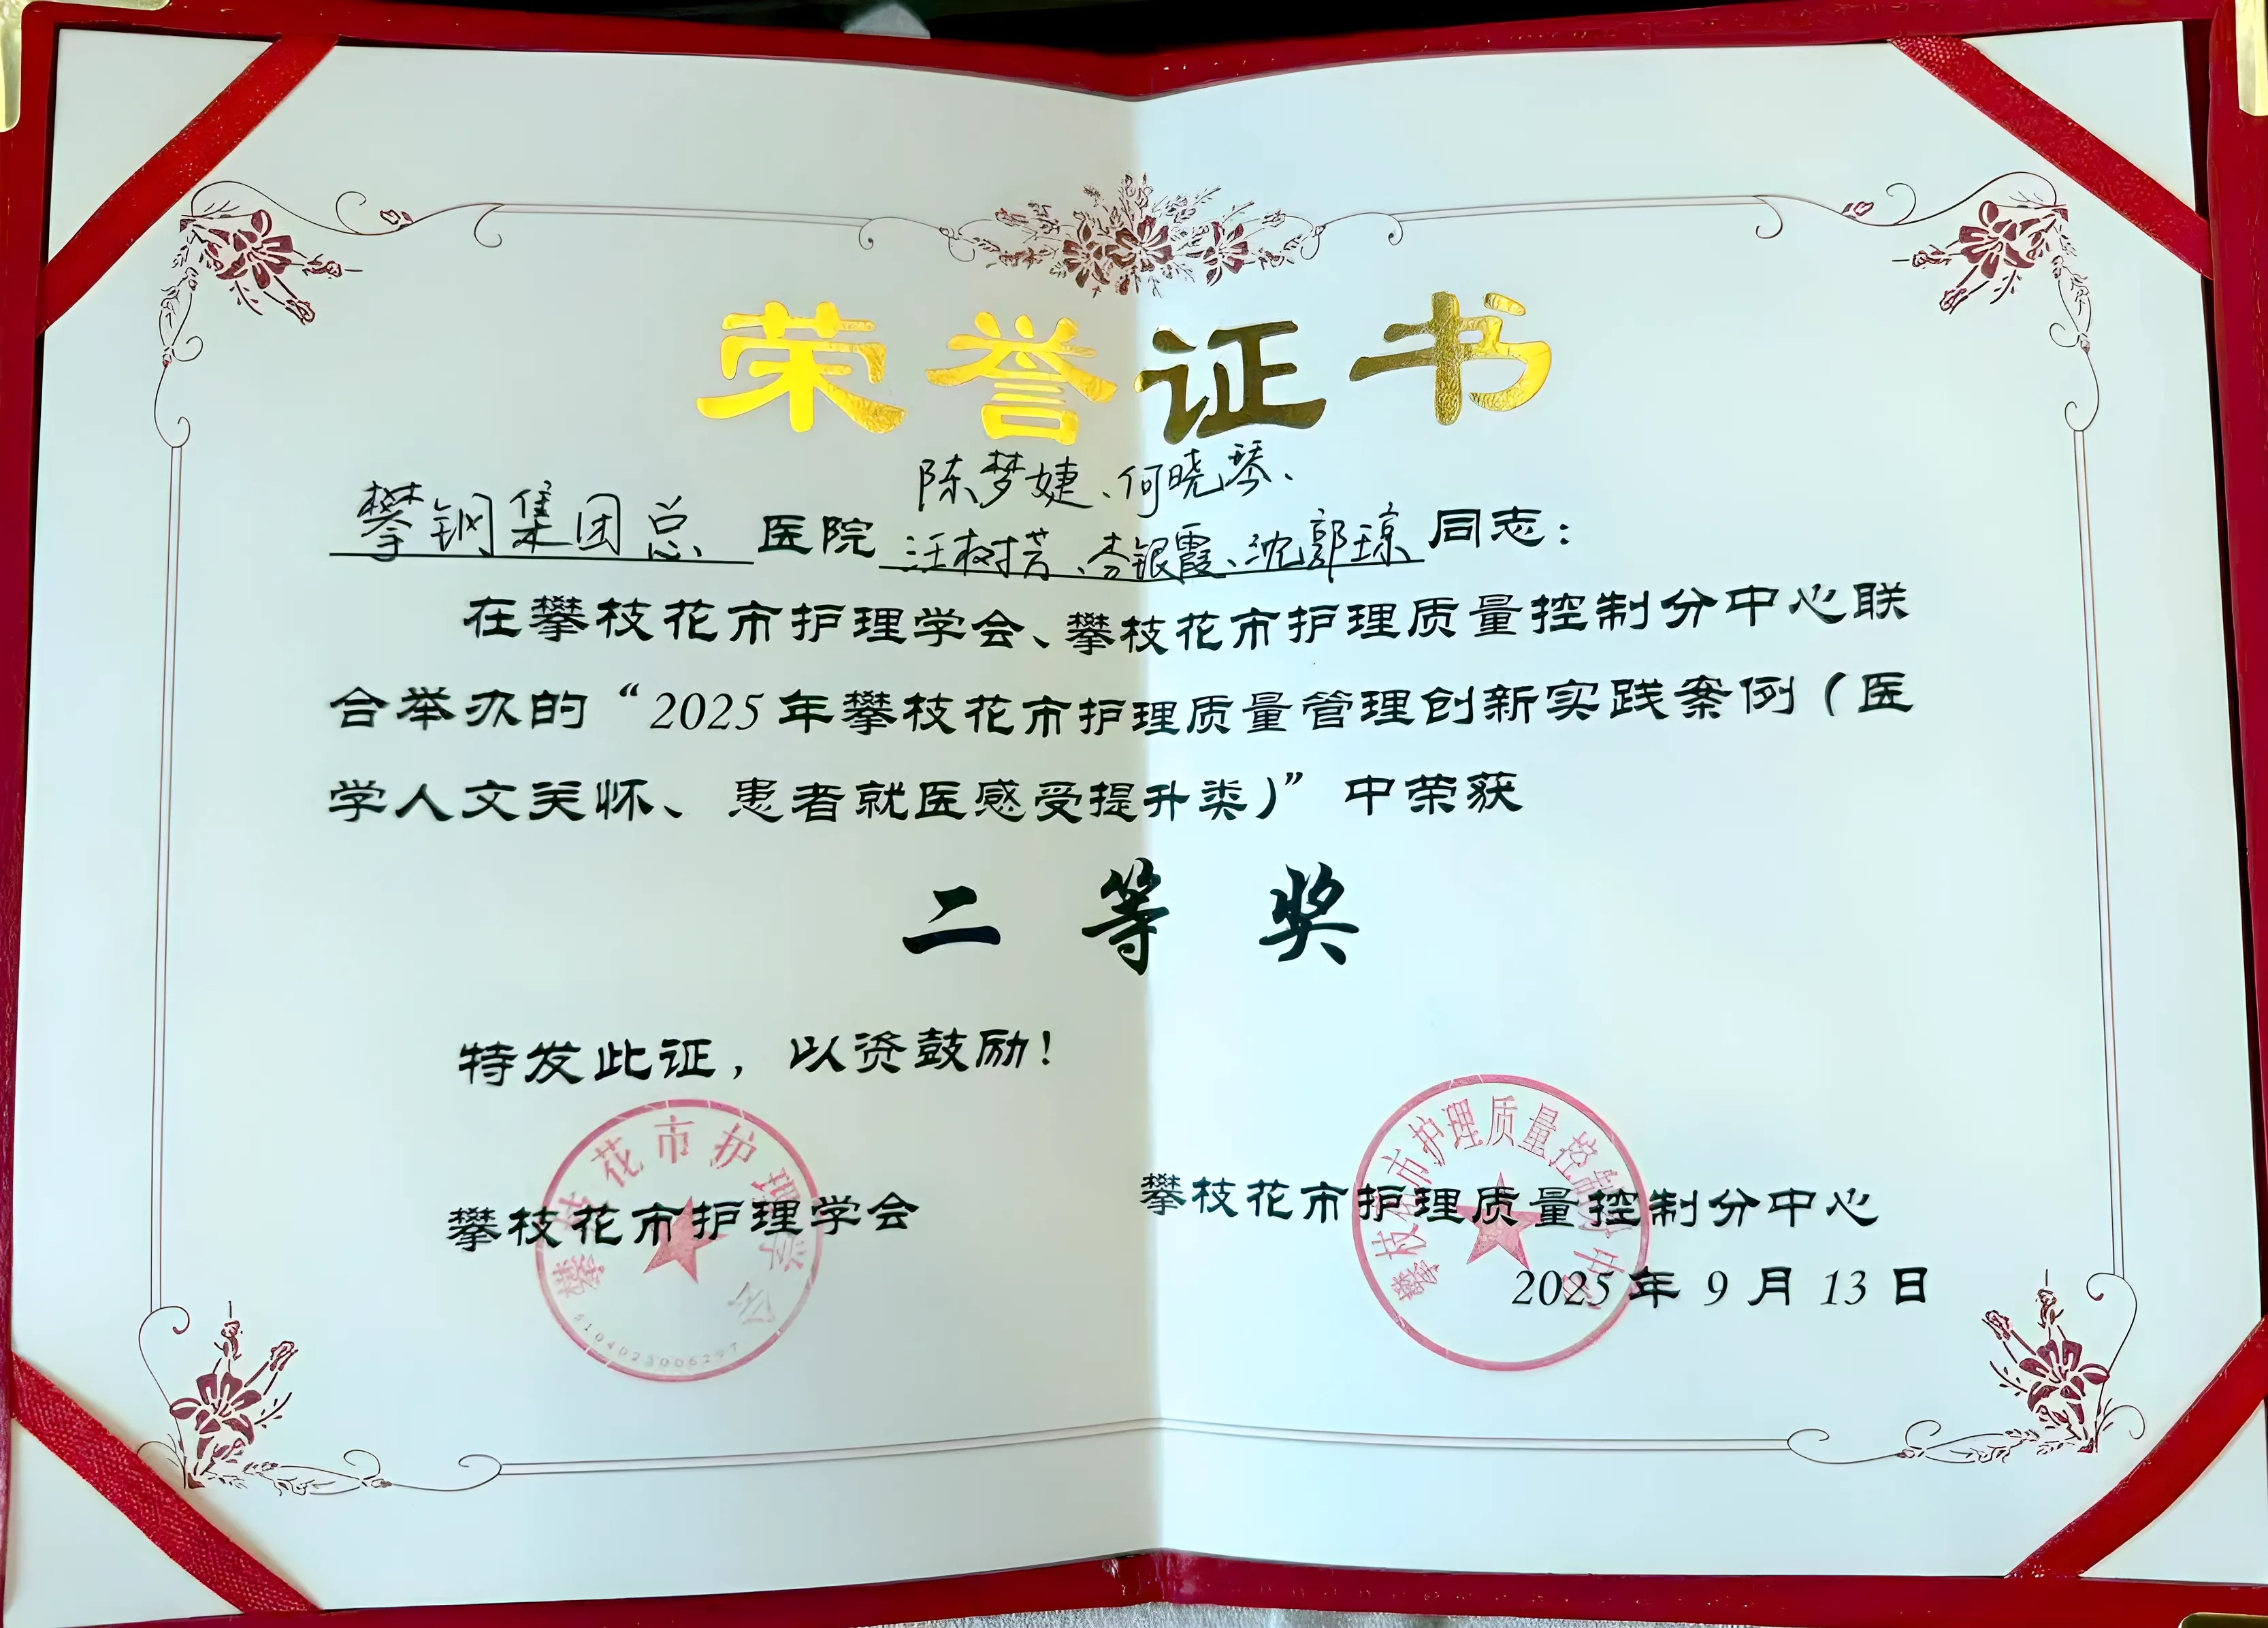 荣誉证书
陈梦婕、何晓琴、
攀钢集团总 医院 汪树芳、李银霞、沈郭琼 同志：
在攀枝花市护理学会、攀枝花市护理质量控制分中心联
合举办的“2025年攀枝花市护理质量管理创新实践案例（医
学人文关怀、患者就医感受提升类）”中荣获
二等奖
特发此证，以资鼓励！
攀枝花市护理学会
攀枝花市护理质量控制分中心
2025年9月13日
攀枝花市护理学会
攀枝花市护理质量控制分中心